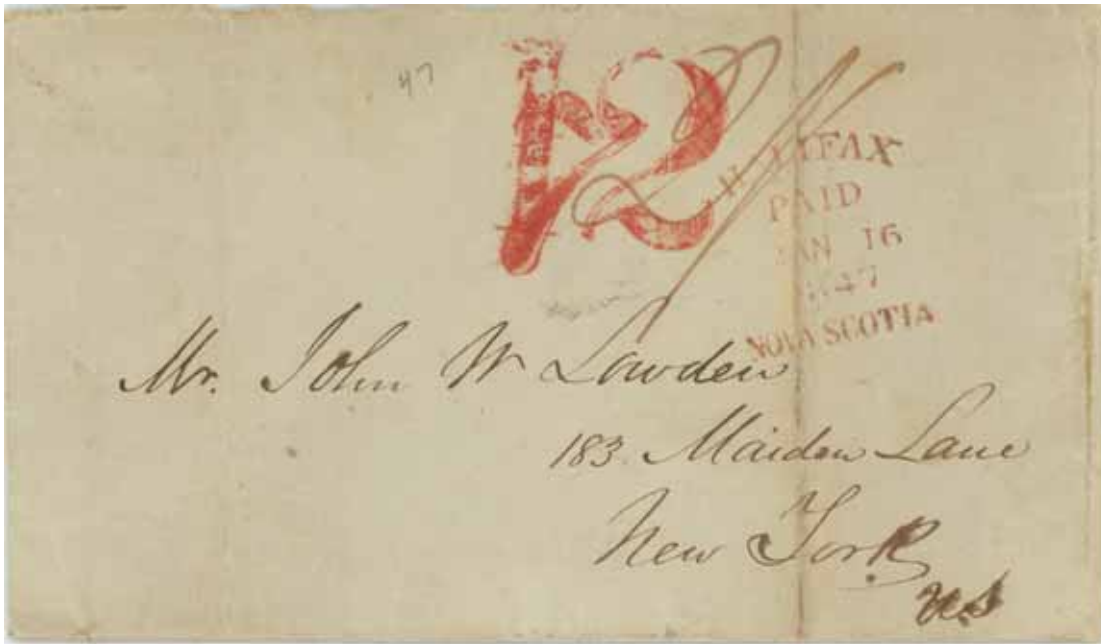 47
12
HALIFAX
PAID
JAN 16
1847
NOVA SCOTIA
Mr. John W Lowden
183 Maiden Lane
New York
U.S